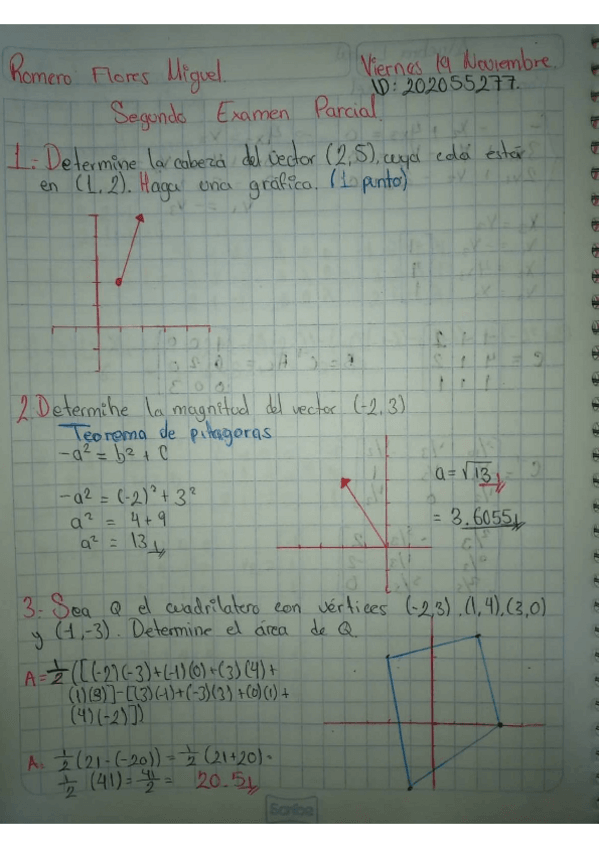 Romero Flores Miguel.
Viernes 19 Noviembre.
ID: 202055277.
Segundo Examen Parcial.
1.- Determine la cabeza del vector (2,5), cuya cola están
en (1,2). Haga una gráfica. (1 punto)
2. Determine la magnitud del vector (-2,3)
Teorema de pitagoras
-a² = b² + C
-a² = (-2)² + 3²
a² = 4+9
a² = 13
a = √13
= 3.6055
3.- Sea Q el cuadrilatero con vértices (-2,3), (1,4), (3,0)
y (-1,-3). Determine el área de Q.
A = 1/2 ([(-2)(-3)+(-1)(0)+(3)(4)+
(1)(3)]-[(3)(-1)+(-3)(3)+(0)(1)+
(4)(-2)])
A= 1/2 (21-(-20)) = 1/2 (21+20) =
1/2 (41) = 41/2 = 20.5
Scribe